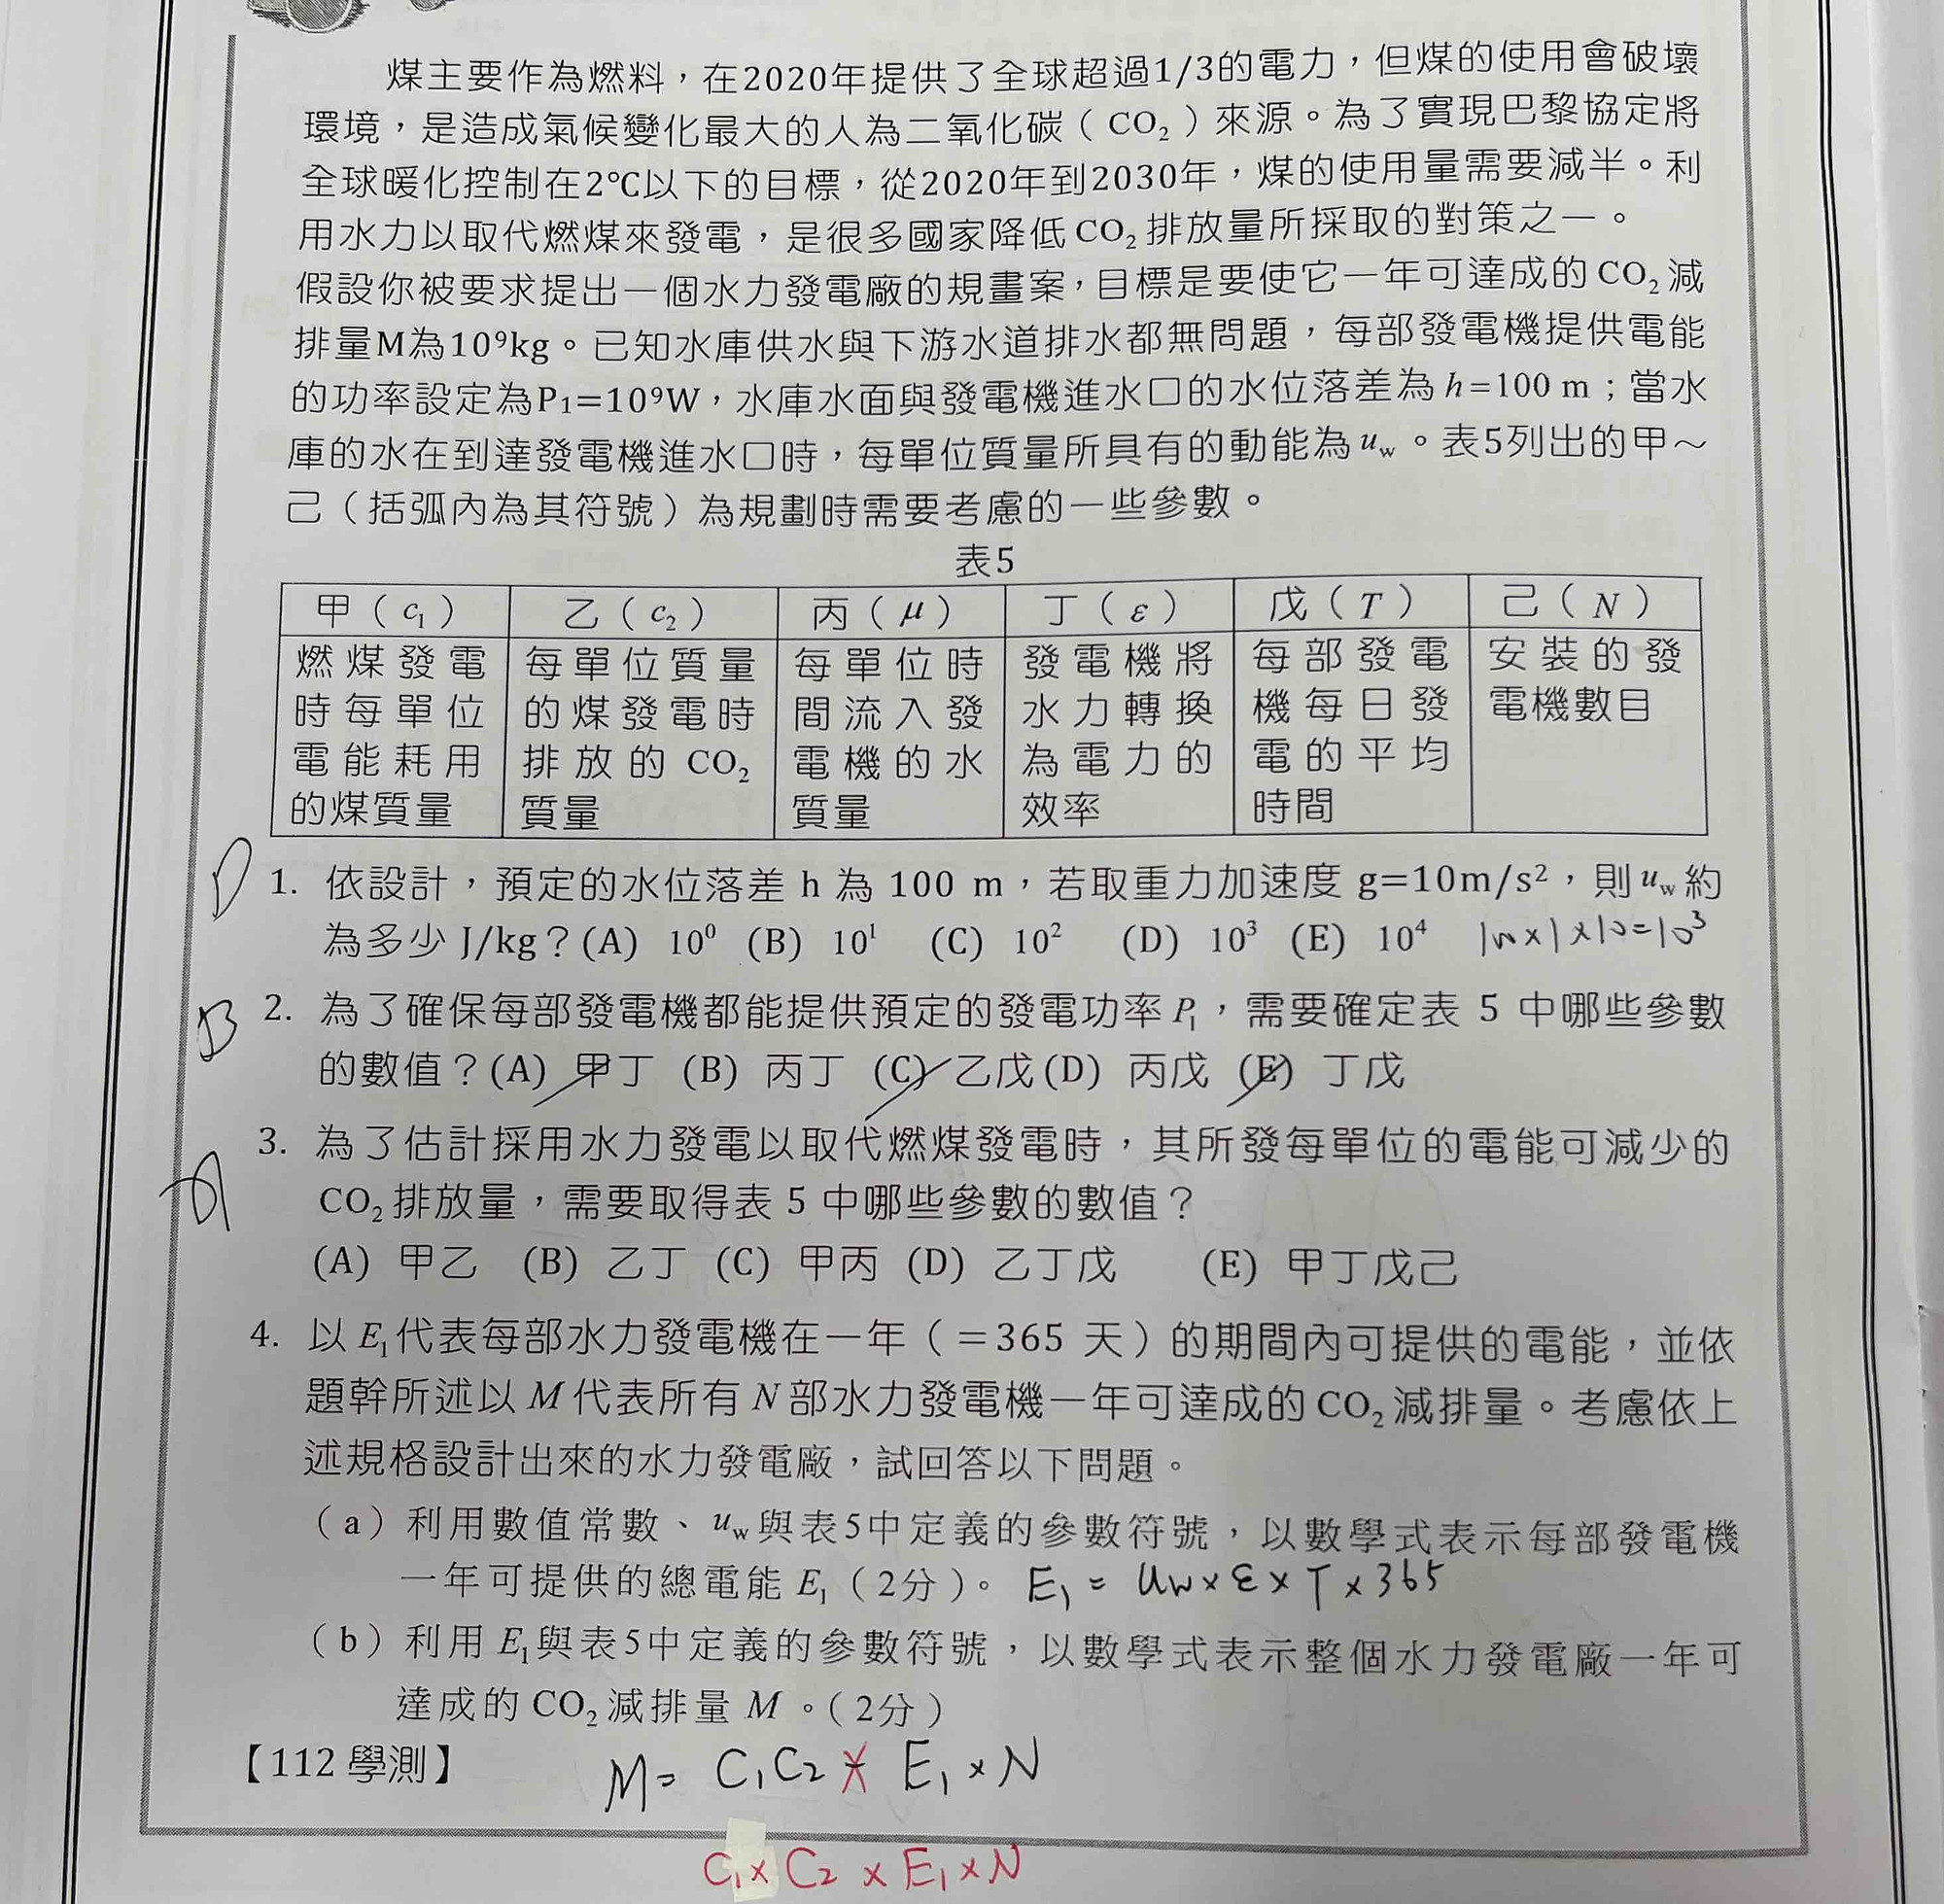 煤主要作為燃料，在2020年提供了全球超過1/3的電力，但煤的使用會破壞
環境，是造成氣候變化最大的人為二氧化碳（CO₂）來源。為了實現巴黎協定將
全球暖化控制在2℃以下的目標，從2020年到2030年，煤的使用量需要減半。利
用水力以取代燃煤來發電，是很多國家降低CO₂排放量所採取的對策之一。
假設你被要求提出一個水力發電廠的規畫案，目標是要使它一年可達成的CO₂減
排量M為10⁹kg。已知水庫供水與下游水道排水都無問題，每部發電機提供電能
的功率設定為P₁=10⁹W，水庫水面與發電機進水口的水位落差為h=100 m；當水
庫的水在到達發電機進水口時，每單位質量所具有的動能為u_w。表5列出的甲～
己（括弧內為其符號）為規劃時需要考慮的一些參數。
表5
甲（c₁） 乙（c₂） 丙（μ） 丁（ε） 戊（T） 己（N）
燃煤發電 每單位質量 每單位時 發電機將 每部發電 安裝的發
時每單位 的煤發電時 間流入發 水力轉換 機每日發 電機數目
電能耗用 排放的 CO₂ 電機的水 為電力的 電的平均
的煤質量 質量 質量 效率 時間
D
1. 依設計，預定的水位落差 h 為 100 m，若取重力加速度 g=10m/s²，則u_w約
為多少 J/kg？(A) 10⁰ (B) 10¹ (C) 10² (D) 10³ (E) 10⁴ 100×1×10=10³
B
2. 為了確保每部發電機都能提供預定的發電功率P₁，需要確定表 5 中哪些參數
的數值？(A) 甲丁 (B) 丙丁 (C) 乙戊(D) 丙戊 (E) 丁戊
3. 為了估計採用水力發電以取代燃煤發電時，其所發每單位的電能可減少的
A
CO₂排放量，需要取得表 5 中哪些參數的數值？
(A) 甲乙 (B) 乙丁 (C) 甲丙 (D) 乙丁戊 (E) 甲丁戊己
4. 以E₁代表每部水力發電機在一年（=365 天）的期間內可提供的電能，並依
題幹所述以M代表所有N部水力發電機一年可達成的CO₂減排量。考慮依上
述規格設計出來的水力發電廠，試回答以下問題。
（a）利用數值常數、u_w與表5中定義的參數符號，以數學式表示每部發電機
一年可提供的總電能E₁（2分）。 E₁= Uw×ε×T×365
（b）利用E₁與表5中定義的參數符號，以數學式表示整個水力發電廠一年可
達成的CO₂減排量M。（2分）
【112 學測】 M= C₁C₂×E₁×N
C₁×C₂×E₁×N